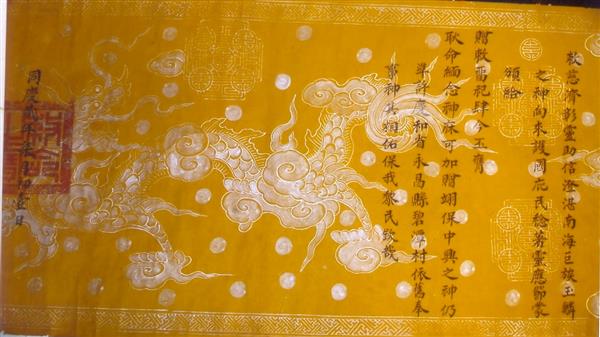 敕慈濟彰靈助信澄湛南海巨族玉麟
之神向來護國庇民稔著靈應節蒙
頒給
贈敕留祀肆今丕膺
耿命緬念神庥可加贈翊保中興之神仍
準許慶和省永昌縣碧潭村依舊奉
事神其相佑保我黎民欽哉
同慶貳年柒月初壹日